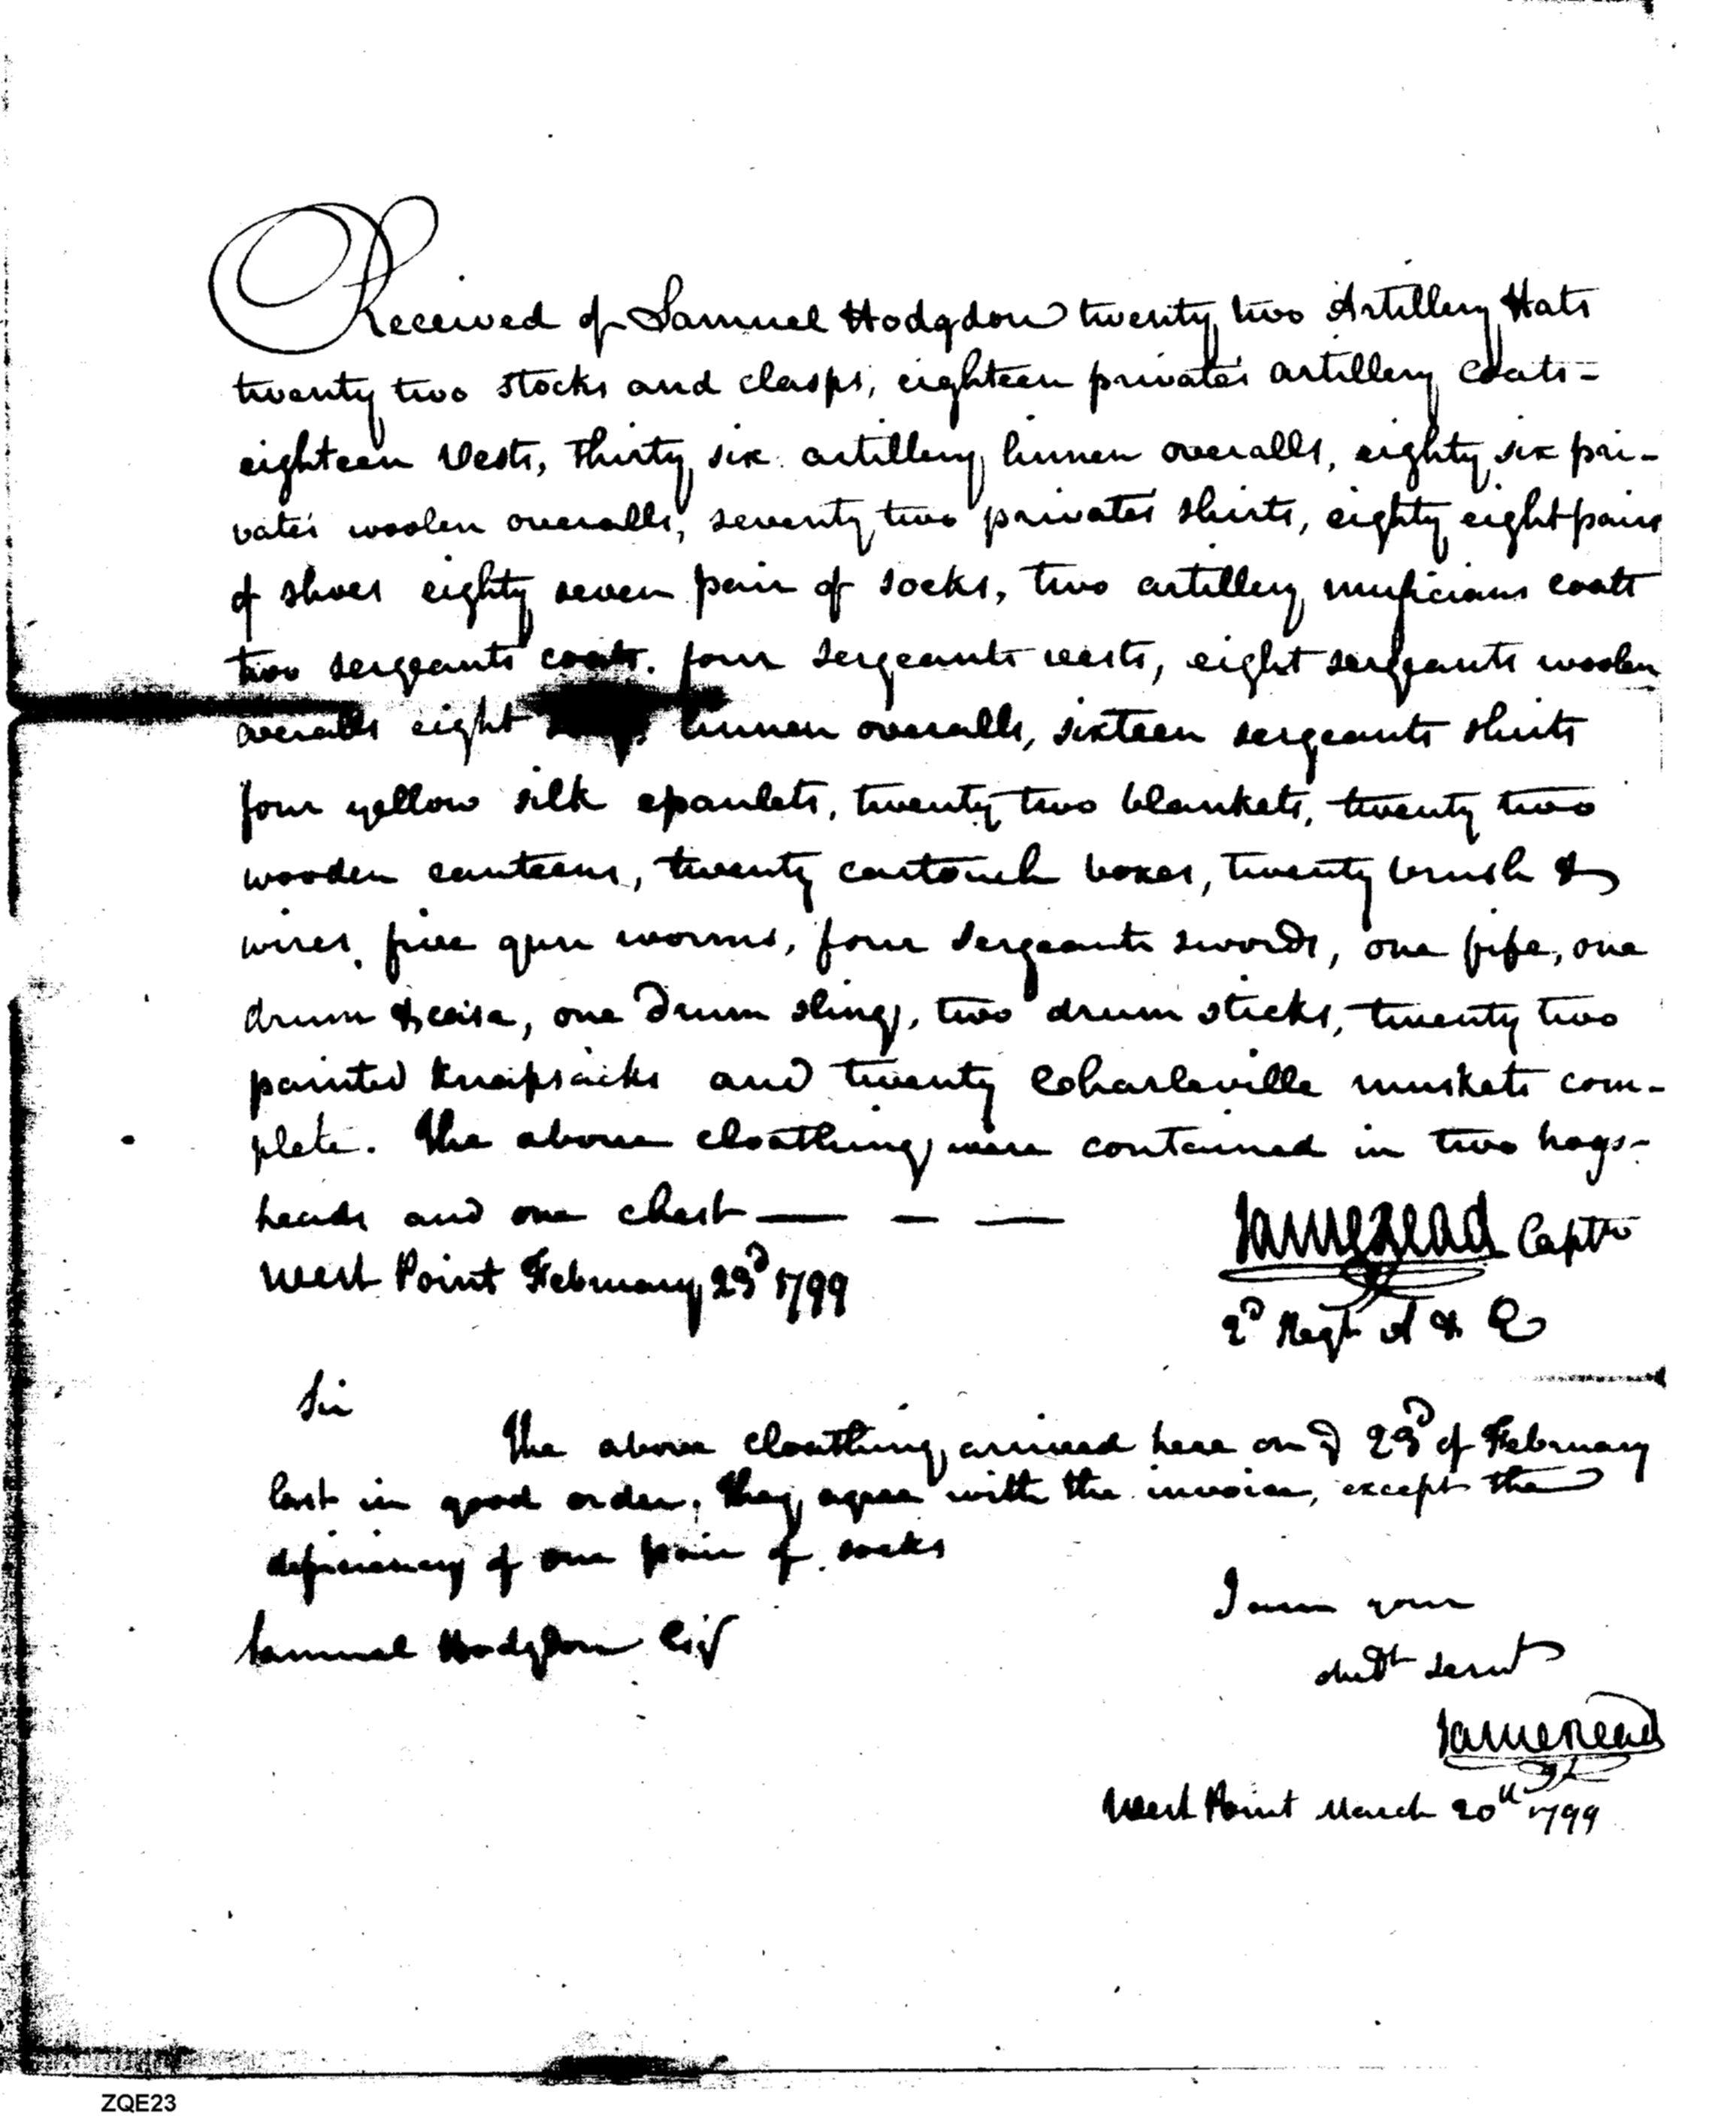 Received of Samuel Hodgdon twenty two Artillery Hats
twenty two stocks and clasps, eighteen privates artillery coats -
eighteen Vests, thirty six artillery linnen overalls, eighty six pri-
vates woolen overalls, seventy two privates shirts, eighty eight pairs
of shoes eighty seven pair of socks, two artillery musicians coats
two sergeants coats. four sergeants vests, eight sergeants woolen
overalls eight linnen overalls, sixteen sergeants shirts
four yellow silk epaulets, twenty two blankets, twenty two
wooden canteens, twenty cartouch boxes, twenty brush &
wires, five gun worms, four sergeants swords, one fife, one
drum & case, one drum sling, two drum sticks, twenty two
painted knapsacks and twenty Charleville muskets com-
plete. The above cloathing were contained in two hogs-
heads and one chest — — —
James Read Captn
West Point February 23d 1799
2d Regt A & E
Sir
The above cloathing arrived here on 23d of February
last in good order, they agree with the invoice, except the
deficiency of one pair of socks
I am your
obedt servt
Samuel Hodgdon Esqr
James Read
West Point March 20th 1799
ZQE23